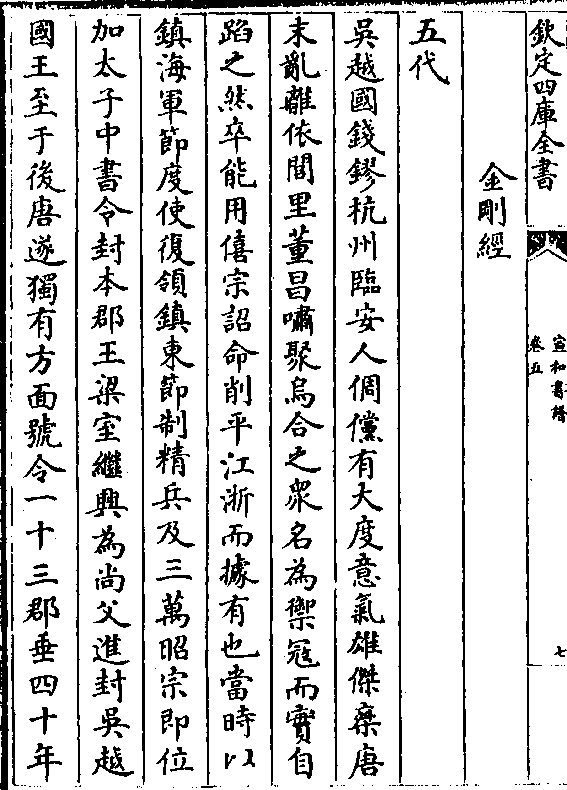 欽定四庫全書
宣和書譜
卷五
七
金剛經
五代
吳越國錢鏐杭州臨安人倜儻有大度意氣雄傑乘唐
末亂離依閭里董昌嘯聚烏合之衆名為禦冦而實自
蹈之然卒能用僖宗詔命削平江浙而據有也當時以
鎮海軍節度使復領鎮東節制精兵及三萬昭宗即位
加太子中書令封本郡王梁室繼興為尚父進封吳越
國王至于後唐遂獨有方面號令一十三郡垂四十年